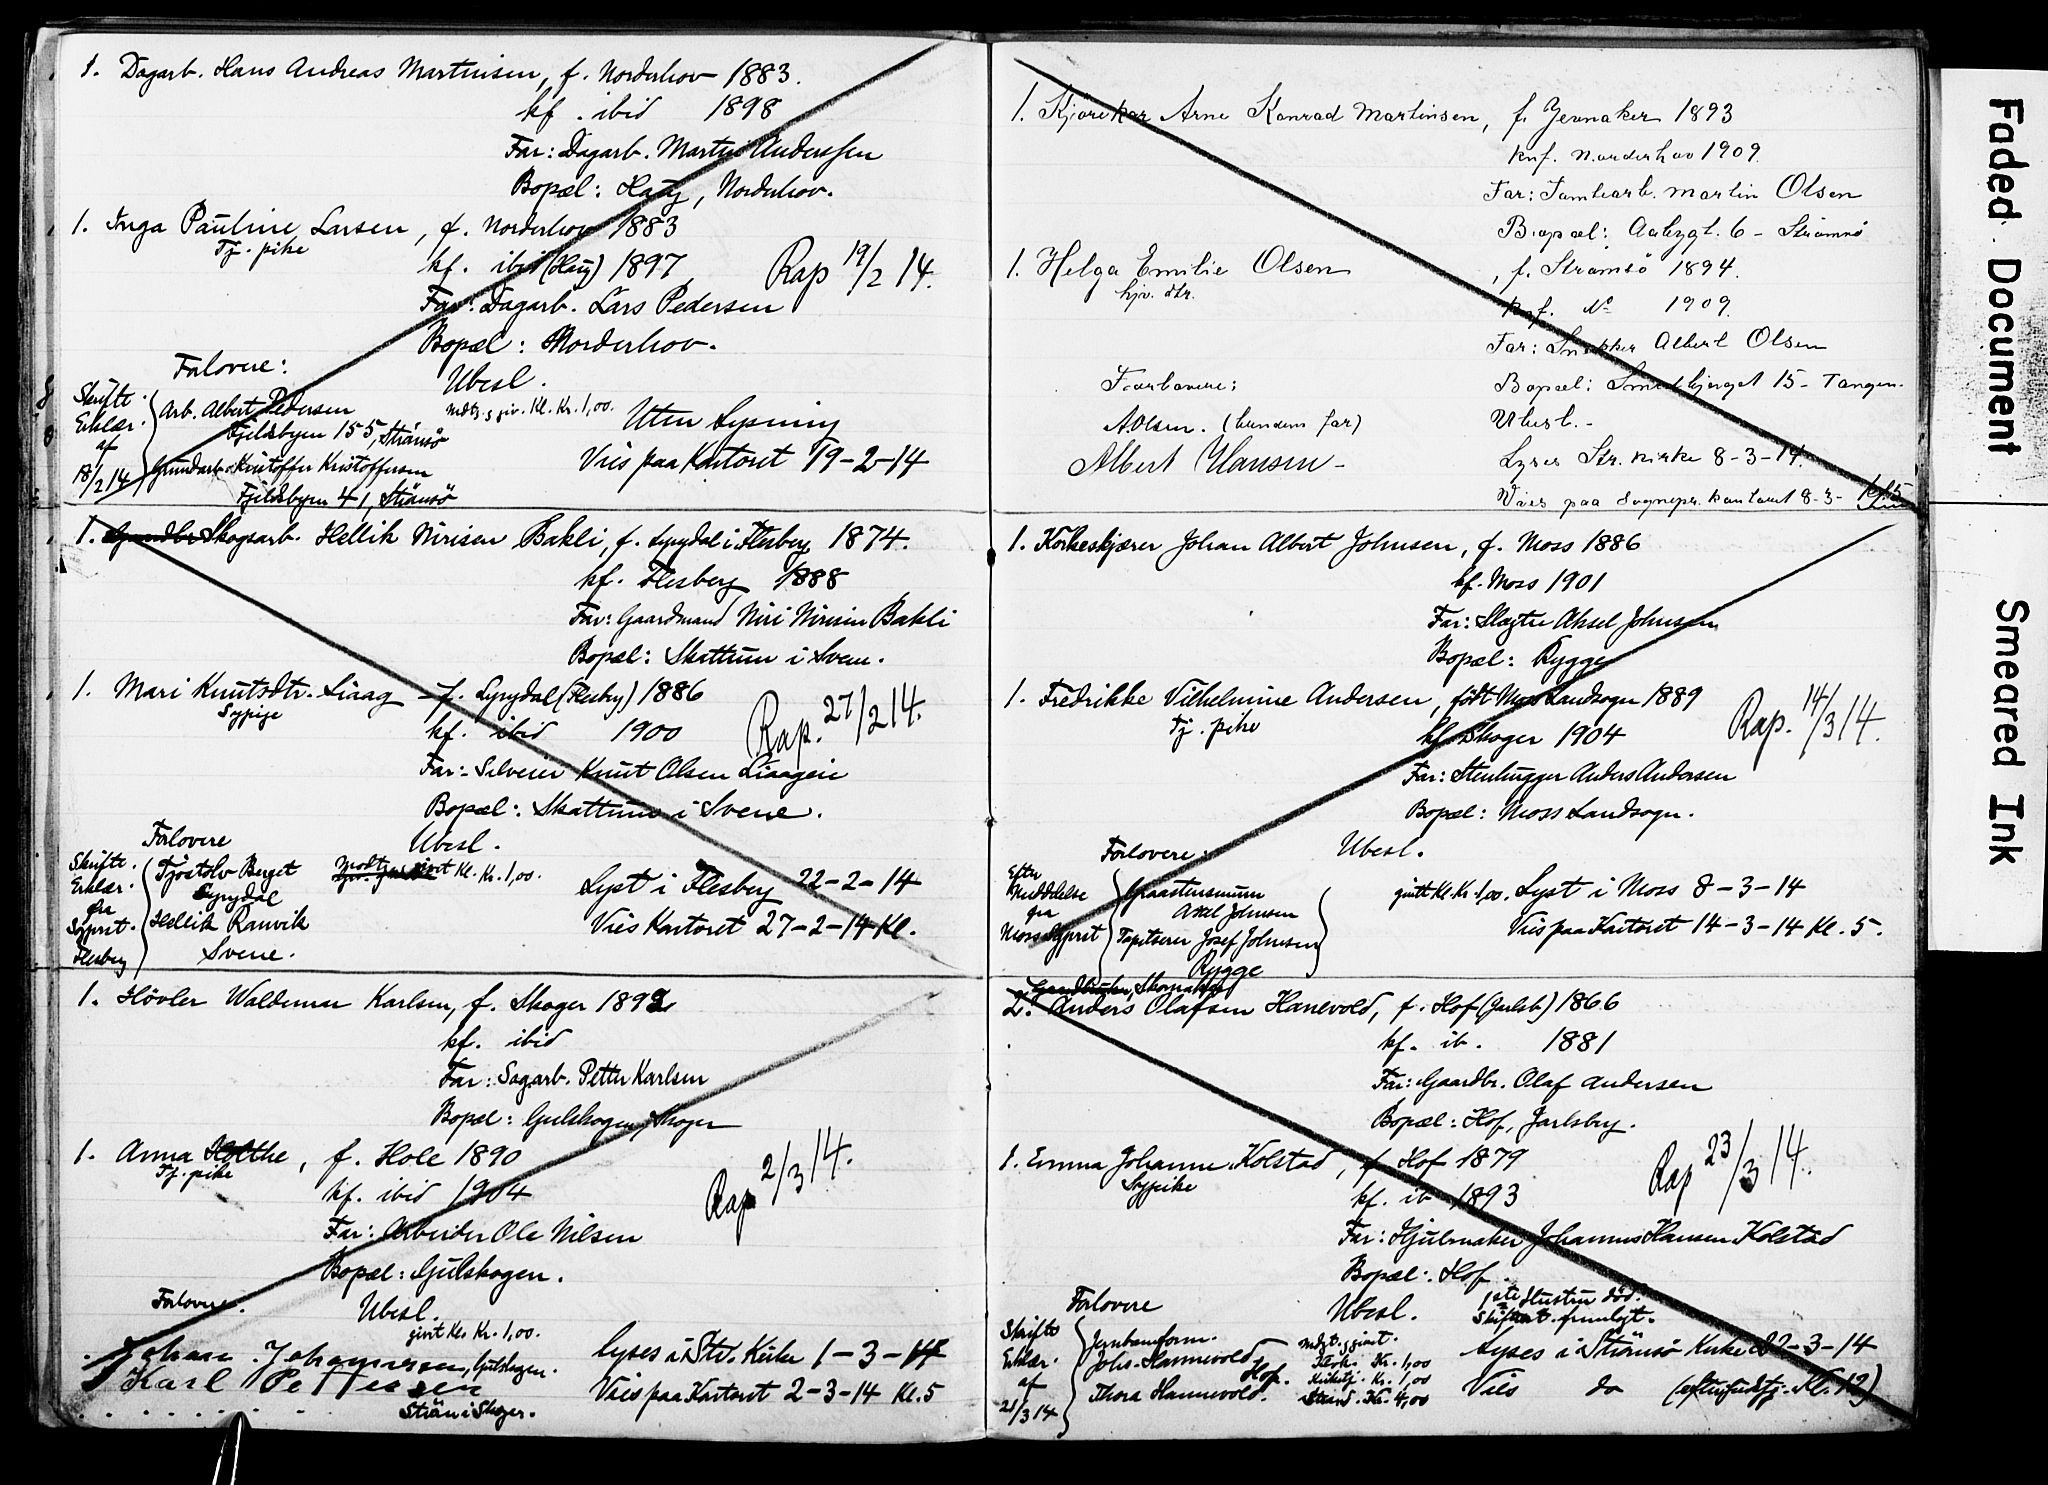 1. Dagarb. Hans Andreas Martinsen, f. Norderhov 1883.
kf. ibid 1898
Far: Dagarb. Martin Anderssen
Bopæl: Haug, Norderhov.
1. Inga Pauline Larsen, f. Norderhov 1883
Tj. pike
kf. ibid (Haug) 1897
Rap 19/2 14.
Far: Dagarb. Lars Pedersen
Bopæl: Norderhov.
Forlovere:
Ubesl.
Skriftl. Erklær. af 18/2 14
Arb. Albert Pedersen
Fjeldbyen 155, Strömsö
Grundarb. Kristoffer Kristoffersen
Fjeldbyen 41, Strömsö
Kl. Kr. 1,00.
Uten Lysning
Vies paa Kontoret 19-2-14
1. Skogsarb. Hellik Nirisen Bakli, f. Lyngdal i Flesberg 1874.
kf. Flesberg 1888
Far: Gaardmand Niri Nirisen Bakli
Bopæl: Skattum i Svene.
1. Mari Knutsdtr. Liaag - f. Lyngdal (Flesbg) 1886
Sypige
kf. ibid 1900
Rap. 27/2 14.
Far: Selveier Knut Olsen Liaageie
Bopæl: Skattum i Svene.
Forlovere
Ubesl.
Skriftl. Erklær. fra Sogneprst. Flesberg
Tjöstolv Berget
Lyngdal
Hellik Ranvik
Svene.
Kl. Kr. 1,00.
Lyst i Flesberg 22-2-14
Vies Kontoret 27-2-14 Kl.
1. Hövler Waldemar Karlsen, f. Skoger 1892
kf. ibid
Far: Sagarb. Petter Karlsen
Bopæl: Gulskogen, Skoger
1. Anna Holthe, f. Hole 1890
Tj. pike
kf. ibid 1904
Rap 2/3 14.
Far: Arbeider Ole Nilsen
Bopæl: Gulskogen.
Forlovere.
Ubesl.
givit Kl. Kr. 1,00.
Johan Johannessen, Gulskogen.
Karl Pettersen
Ström i Skoger.
Lyses i Str. Kirke 1-3-14
Vies paa Kontoret 2-3-14 Kl. 5
1. Kjörekar Arne Konrad Martinsen, f. Jevnaker 1893
knf. Norderhov 1909.
Far: Tomtearb. Martin Olsen
Bopæl: Aabygt. 6 - Strömsö
1. Helga Emilie Olsen, f. Strömsö 1894.
hjv. dtr.
knf. do 1909.
Far: Snekker Albert Olsen
Forlovere:
Bopæl: Smedbjerget 15 - Tangen.
A. Olsen. (brudens far)
Ubesl. -
Albert Hansen -
Lyses Str. kirke 8-3-14.
Vies paa Sognepr. kontoret 8-3- kl. 5
1. Korkeskjærer Johan Albert Johnsen, f. Moss 1886
kf. Moss 1901
Far: Slagter Aksel Johnsen
Bopæl: Rygge
1. Fredrikke Vilhelmine Andersen, födt Moss Landsogn 1889
Tj. pike
kf. Skoger 1904
Rap. 14/3 14.
Far: Stenhugger Anders Andersen
Bopæl: Moss Landsogn.
Forlovere:
Ubesl.
Efter Meddelelse fra Moss Sgprst
Graastensmurer
Axel Johnsen
Tapetserer Josef Johnsen
Rygge
givit Kl. Kr. 1,00.
Lyst i Moss 8-3-14
Vies paa Kontoret 14-3-14 Kl. 5.
Gaardbruker, Skomaker
2. Anders Olafsen Hanevold, f. Hof (Jarlsb.) 1866
kf. ib. 1881
Far: Gaardbr. Olaf Andersen
Bopæl: Hof, Jarlsberg.
1. Emma Johanne Kolstad, f. Hof 1879
Sypike
kf. ib 1893
Rap 23/3 14.
Far: Hjulmaker Johannes Hansen Kolstad
Bopæl: Hof.
Forlovere
Ubesl.
1ste Hustru död.
Skifteat. fremlagt.
Skriftl. Erklær. af 21/3 14
Jernbaneform.
Johs. Hannevold
Hof.
Thora Hannevold.
Kr. 1,00
Kr. 1,00
Kr. 4,00
Lyses i Strömsö Kirke 22-3-14
Vies do (eftergudstj. Kl. 12)
Faded Document
Smeared Ink